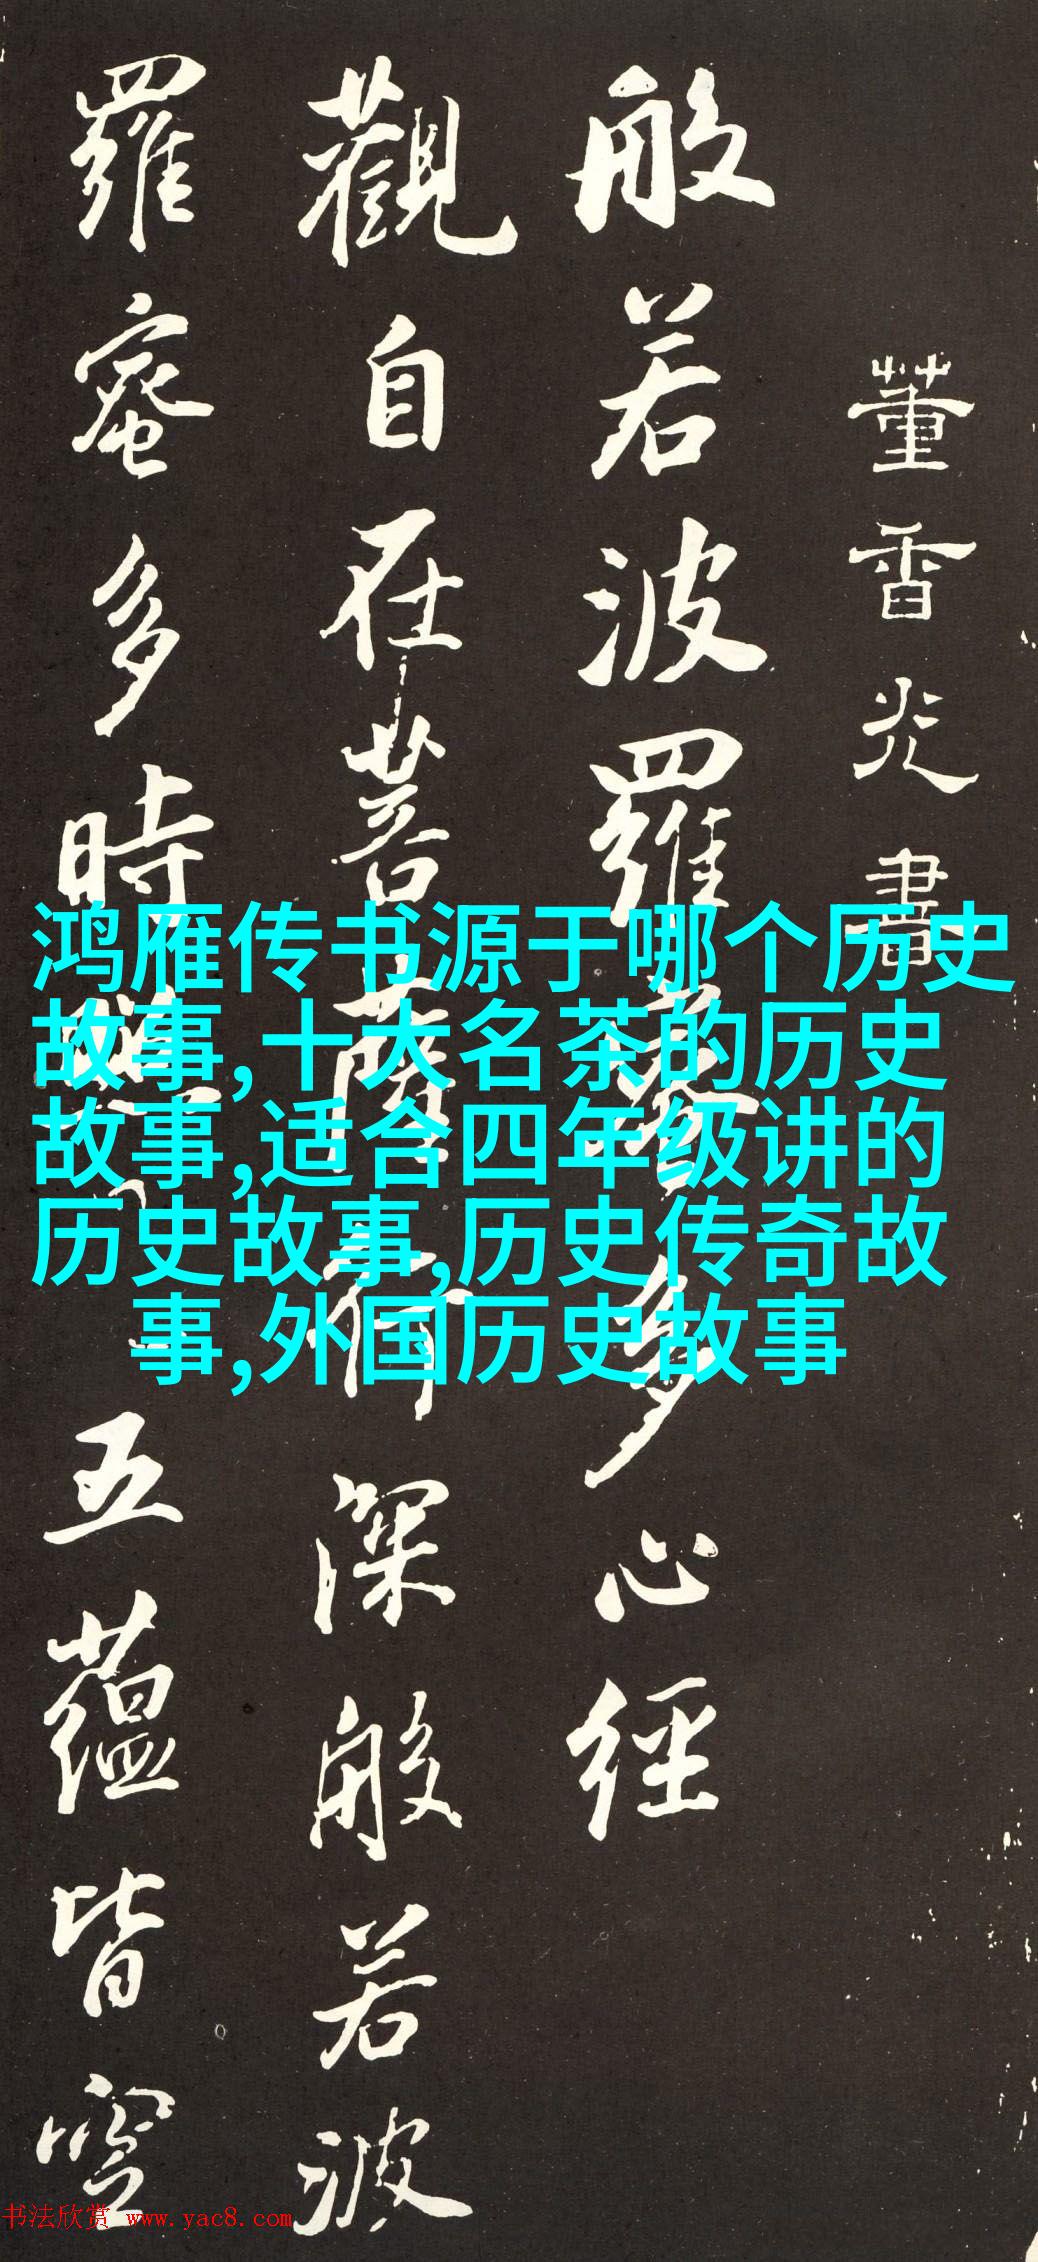 董香光書
般若波羅蜜多心經
觀自在菩薩行深般若波
羅蜜多時照見五蘊皆空
鸿雁传书源于哪个历史
故事,十大名茶的历史
故事,适合四年级讲的
历史故事,历史传奇故
事,外国历史故事
书法欣赏 www.yac8.com